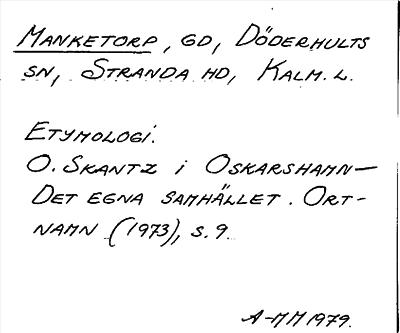 Manketorp, gd, Döderhults
sn, Stranda hd, Kalm. l.
Etymologi.
O. Skantz i Oskarshamn—
Det egna samhället. Ort-
namn (1973), s. 9.
A-MM 1979.